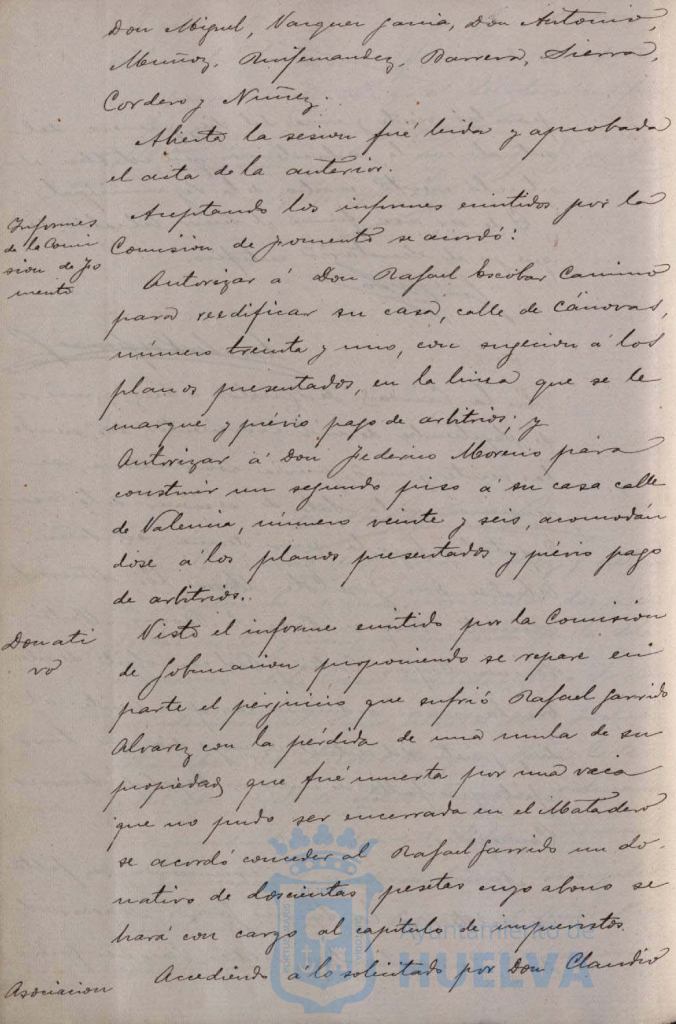 Don Miguel, Vazquez Garcia, Don Antonio,
Muñoz, Ruifernandez, Barrera, Sierra,
Cordero y Nuñez.
Abierta la sesion fué leida y aprobada
el acta de la anterior.
Informes
de la Comi
sion de Fo
mento
Aceptando los informes emitidos por la
Comision de Fomento se acordó:
Autorizar á Don Rafael Escobar Camino
para reedificar su casa, calle de Cánovas,
número treinta y uno, con sugecion á los
planos presentados, en la linea que se le
marque y prévio pago de arbitrios; y
Autorizar á Don Federico Moreno para
construir un segundo piso á su casa calle
de Valencia, número veinte y seis, acomodán
dose á los planos presentados y prévio pago
de arbitrios.
Donati
vo
Visto el informe emitido por la Comision
de Gobernacion proponiendo se repare en
parte el perjuicio que sufrió Rafael Garrido
Alvarez con la pérdida de una mula de su
propiedad que fué muerta por una vaca
que no pudo ser encerrada en el Matadero
se acordó conceder al Rafael Garrido un do-
nativo de doscientas pesetas cuyo abono se
hará con cargo al capítulo de imprevistos.
Asociacion
Accediendo á lo solicitado por Don Claudio
Ayuntamiento de
HUELVA